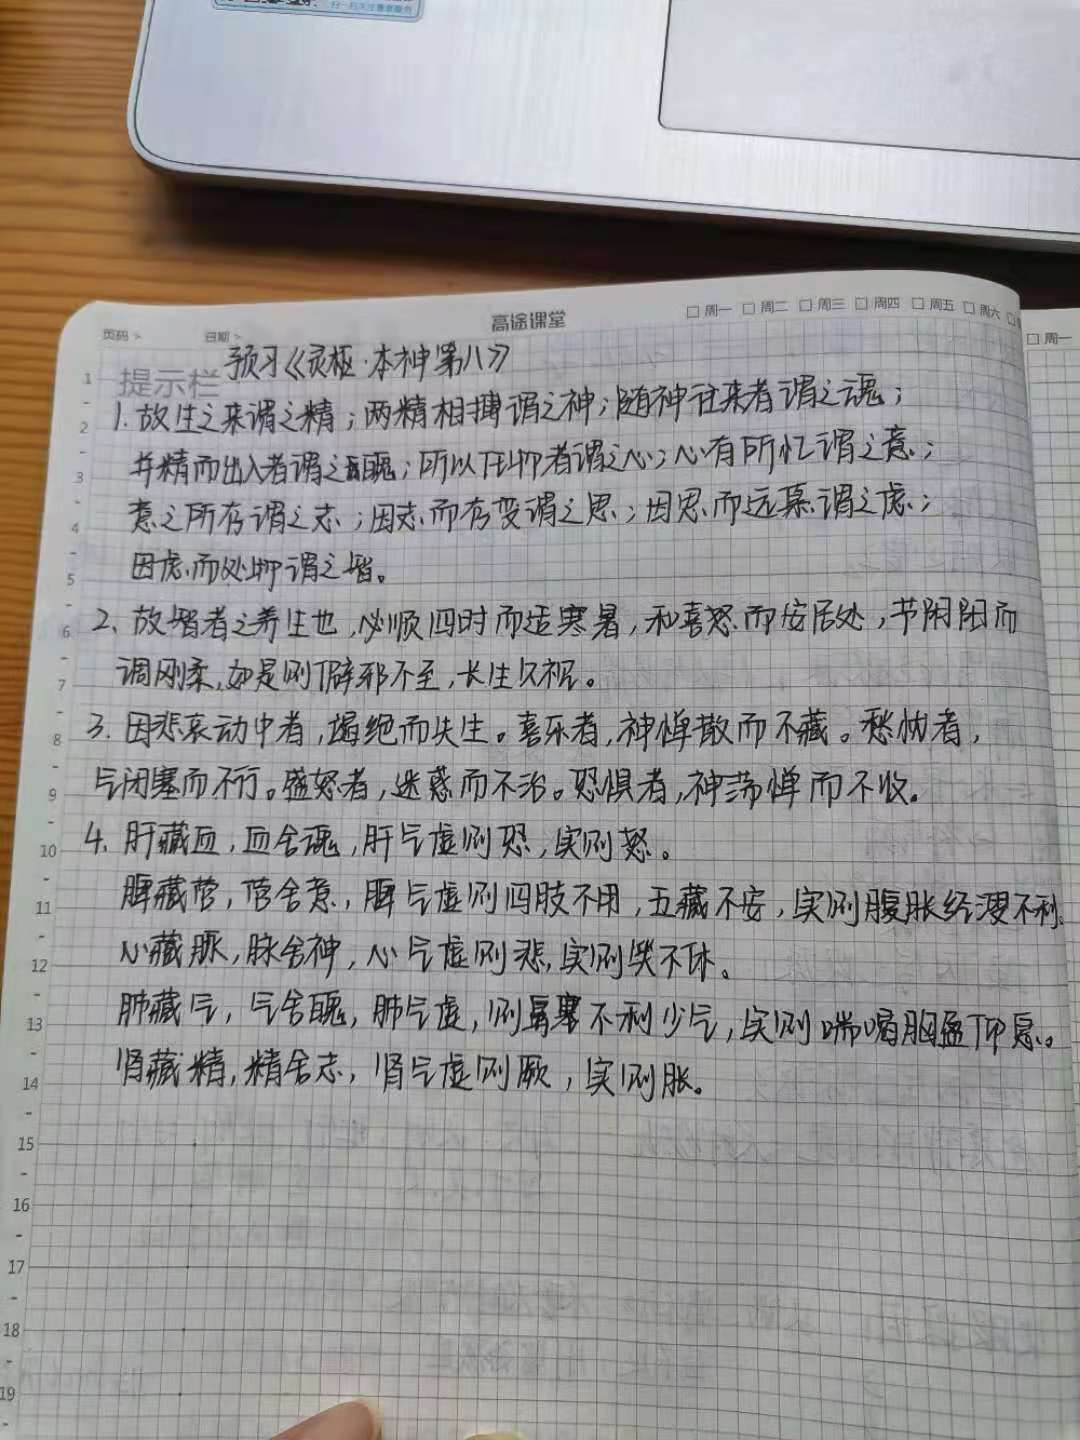 扫一扫关注尊享服务
页码 > 日期 > 高途课堂 周一 周二 周三 周四 周五 周六
周一
提示栏
预习《灵枢·本神第八》
1. 故生之来谓之精；两精相搏谓之神；随神往来者谓之魂；
并精而出入者谓之魄；所以任物者谓之心；心有所忆谓之意；
意之所存谓之志；因志而存变谓之思；因思而远慕谓之虑；
因虑而处物谓之智。
2、故智者之养生也，必顺四时而适寒暑，和喜怒而安居处，节阴阳而
调刚柔，如是则僻邪不至，长生久视。
3. 因悲哀动中者，竭绝而失生。喜乐者，神惮散而不藏。愁忧者，
气闭塞而不行。盛怒者，迷惑而不治。恐惧者，神荡惮而不收。
4. 肝藏血，血舍魂，肝气虚则恐，实则怒。
脾藏营，营舍意，脾气虚则四肢不用，五藏不安，实则腹胀经溲不利。
心藏脉，脉舍神，心气虚则悲，实则笑不休。
肺藏气，气舍魄，肺气虚，则鼻塞不利少气，实则喘喝胸盈仰息。
肾藏精，精舍志，肾气虚则厥，实则胀。
1
2
3
4
5
6
7
8
9
10
11
12
13
14
15
16
17
18
19